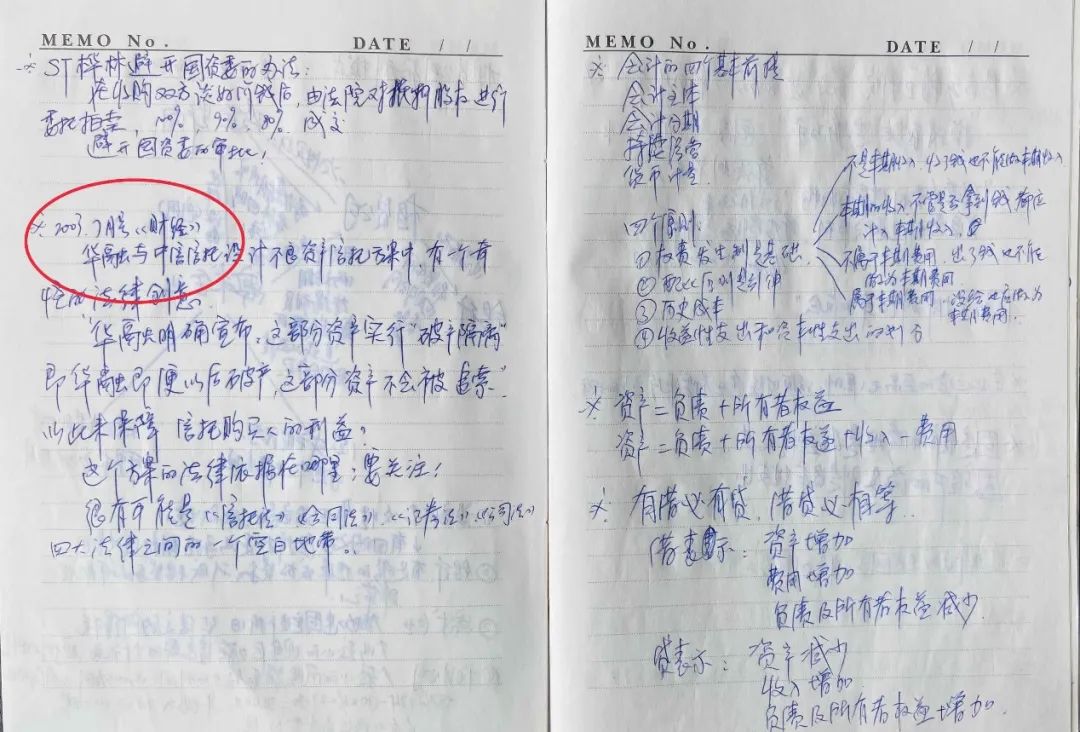 MEMO No.
DATE / /
※ ST桦林避开国资委的办法：
在收购双方谈好价钱后，由法院对抵押股权进行
委托拍卖，100%，90%，80%成交
避开国资委的审批！
※ 2003.7月号《财经》
华融与中信信托设计不良资产信托方案中，有一个奇
怪的法律创意
"华融明确宣布，这部分资产实行"破产隔离"
即华融即便以后破产，这部分资产不会被追索"
以此来保障信托购买人的利益？
这个方案的法律依据在哪里；要关注！
很有可能是《信托法》《合同法》、《证券法》《公司法》
四大法律之间的一个空白地带。
MEMO No.
DATE / /
※ 会计的四个基本前提
会计主体
会计分期
持续经营
货币计量
四个原则
① 权责发生制是基础
② 配比原则是纪律
③ 历史成本
④ 收益性支出和资本性支出的划分
不是本期收入，收了钱也不能做本期收入
本期的收入不管是否拿到钱都应
计入本期收入
不属于本期费用，出了钱也不能
做为本期费用
属于本期费用，没给也应做为
本期费用.
※ 资产=负债+所有者权益
资产=负债+所有者权益+收入-费用
※ 有借必有贷，借贷必相等.
借表示：资产增加
费用增加
负债及所有者权益减少
贷表示：资产减少
收入增加
负债及所有者权益增加